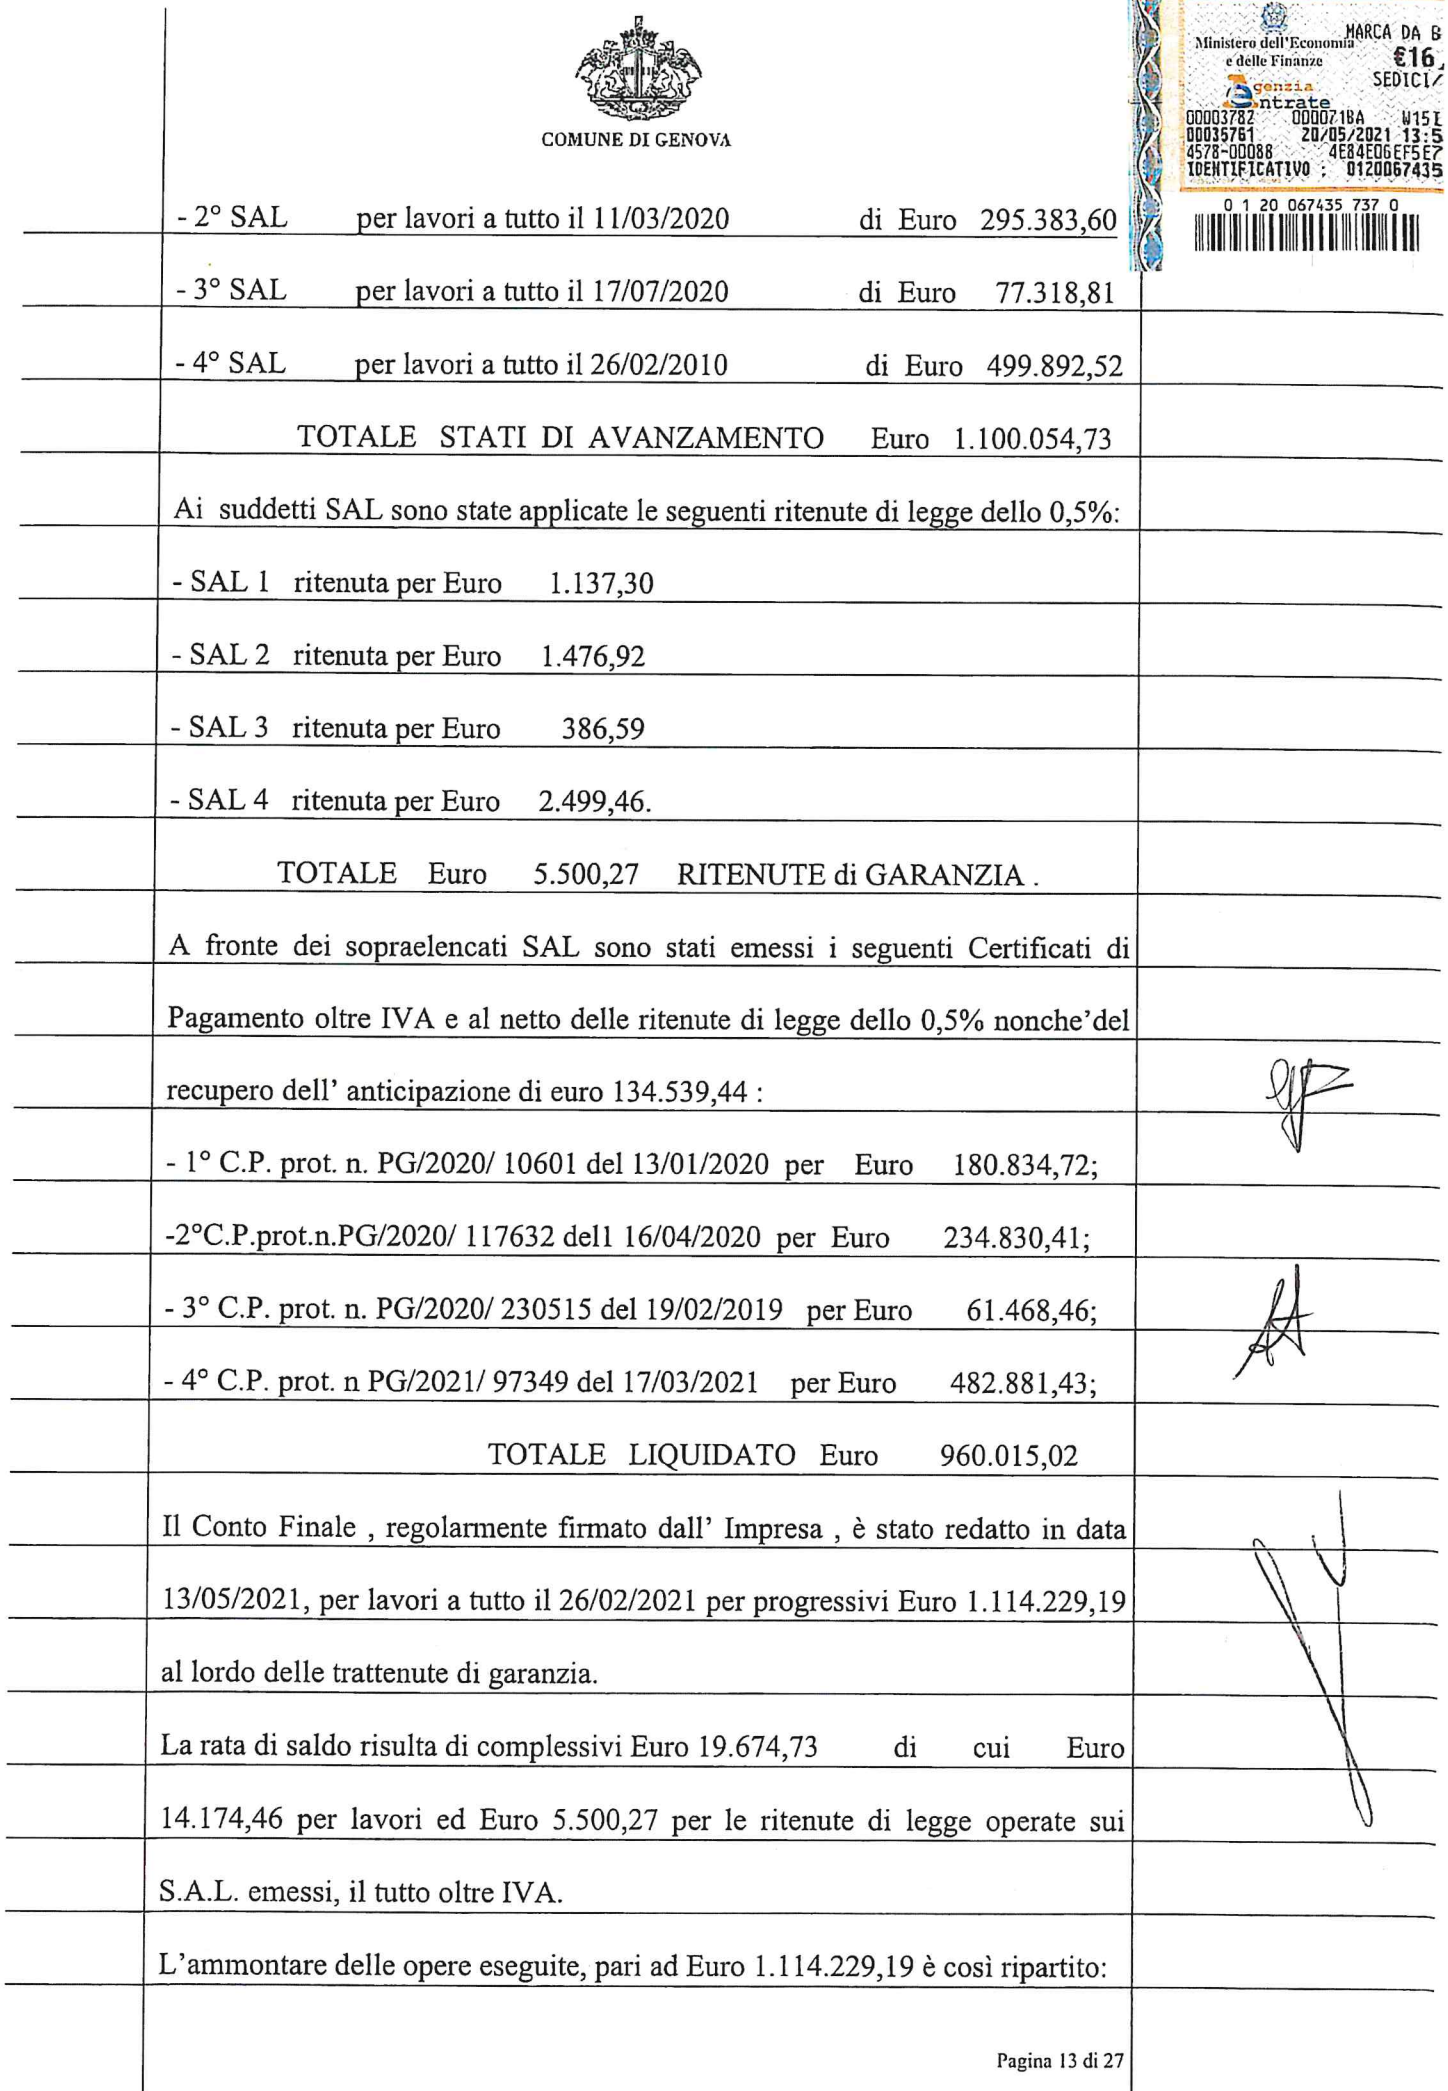 COMUNE DI GENOVA
Ministero dell'Economia
e delle Finanze
MARCA DA B
€16,
SEDICI/
Agenzia
Entrate
00003782 000071BA W15I
00035761 20/05/2021 13:5
4578-00088 4E84E06EF5E7
IDENTIFICATIVO : 0120067435
0 1 20 067435 737 0
- 2° SAL per lavori a tutto il 11/03/2020 di Euro 295.383,60
- 3° SAL per lavori a tutto il 17/07/2020 di Euro 77.318,81
- 4° SAL per lavori a tutto il 26/02/2010 di Euro 499.892,52
TOTALE STATI DI AVANZAMENTO Euro 1.100.054,73
Ai suddetti SAL sono state applicate le seguenti ritenute di legge dello 0,5%:
- SAL 1 ritenuta per Euro 1.137,30
- SAL 2 ritenuta per Euro 1.476,92
- SAL 3 ritenuta per Euro 386,59
- SAL 4 ritenuta per Euro 2.499,46.
TOTALE Euro 5.500,27 RITENUTE di GARANZIA .
A fronte dei sopraelencati SAL sono stati emessi i seguenti Certificati di
Pagamento oltre IVA e al netto delle ritenute di legge dello 0,5% nonche'del
recupero dell' anticipazione di euro 134.539,44 :
- 1° C.P. prot. n. PG/2020/ 10601 del 13/01/2020 per Euro 180.834,72;
-2°C.P.prot.n.PG/2020/ 117632 del1 16/04/2020 per Euro 234.830,41;
- 3° C.P. prot. n. PG/2020/ 230515 del 19/02/2019 per Euro 61.468,46;
- 4° C.P. prot. n PG/2021/ 97349 del 17/03/2021 per Euro 482.881,43;
TOTALE LIQUIDATO Euro 960.015,02
Il Conto Finale , regolarmente firmato dall' Impresa , è stato redatto in data
13/05/2021, per lavori a tutto il 26/02/2021 per progressivi Euro 1.114.229,19
al lordo delle trattenute di garanzia.
La rata di saldo risulta di complessivi Euro 19.674,73 di cui Euro
14.174,46 per lavori ed Euro 5.500,27 per le ritenute di legge operate sui
S.A.L. emessi, il tutto oltre IVA.
L'ammontare delle opere eseguite, pari ad Euro 1.114.229,19 è così ripartito:
Pagina 13 di 27